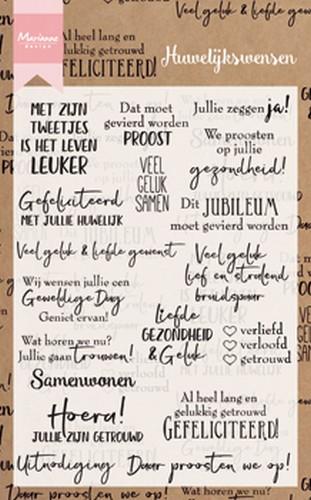 Veel geluk & liefde gewenst
Marianne
design
Al heel lang en
gelukkig getrouwd
GEFELICITEERD!
Huwelijkswensen
MET ZIJN
TWEETJES
IS HET LEVEN
LEUKER
Dat moet
gevierd worden
PROOST
Jullie zeggen ja!
We proosten
op jullie
gezondheid!
VEEL
GELUK
SAMEN
Gefeliciteerd
MET JULLIE HUWELIJK
Dit JUBILEUM
moet gevierd worden
Veel geluk & liefde gewenst
Veel geluk
lief en stralend
bruidspaar
Wij wensen jullie een
Geweldige Day
Geniet ervan!
Liefde
GEZONDHEID
& Geluk
verliefd
verloofd
getrouwd
Wat horen we nu?
Jullie gaan trouwen!
Samenwonen
Hoera!
JULLIE ZIJN GETROUWD
Al heel lang en
gelukkig getrouwd
GEFELICITEERD!
Uitnodiging
Daar proosten we op!